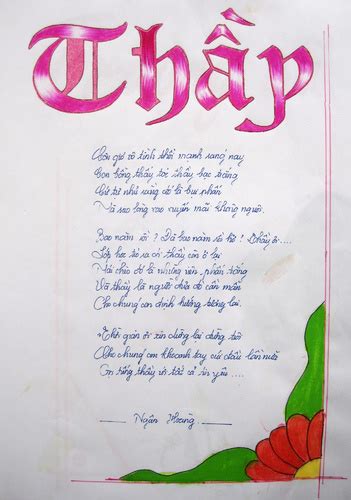 Thầy
Cơn gió vô tình thổi mạnh sáng nay
Con bỗng thấy tóc thầy bạc trắng
Cứ tự nhủ rằng đó là bụi phấn
Mà sao lòng xao xuyến mãi không nguôi
Bao năm rồi ? Đã bao năm rồi hở ? Thầy ơi ....
Lớp học trò ra đi thầy còn ở lại
Mái chèo đó là những viên phấn trắng
Và thầy là người đưa đò cần mẫn
Cho chúng con định hướng tương lai.
Thời gian ơi xin dừng lại đừng trôi
Cho chúng em khoanh tay cúi đầu lần nữa
Gọi tiếng thầy với tất cả tin yêu ....
Ngân Hoàng